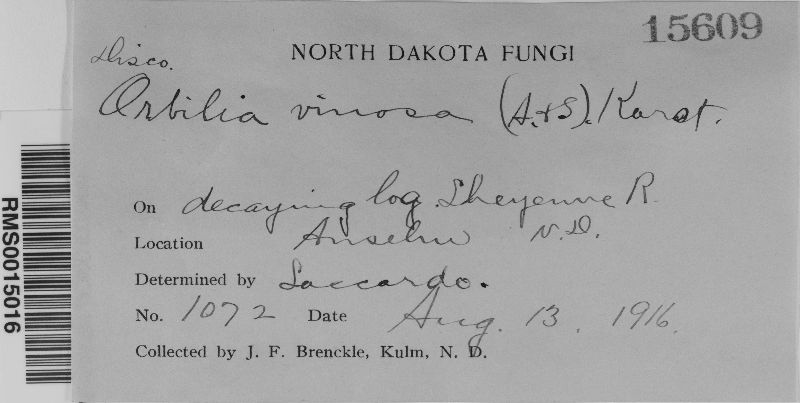 15609
Disco.
NORTH DAKOTA FUNGI
Orbilia vinosa (A.&S). Karst.
On decaying log. Sheyenne R.
Location Anselm N.D.
Determined by Saccardo.
No. 1072 Date Aug. 13, 1916.
Collected by J. F. Brenckle, Kulm, N. D.
RMS0015016